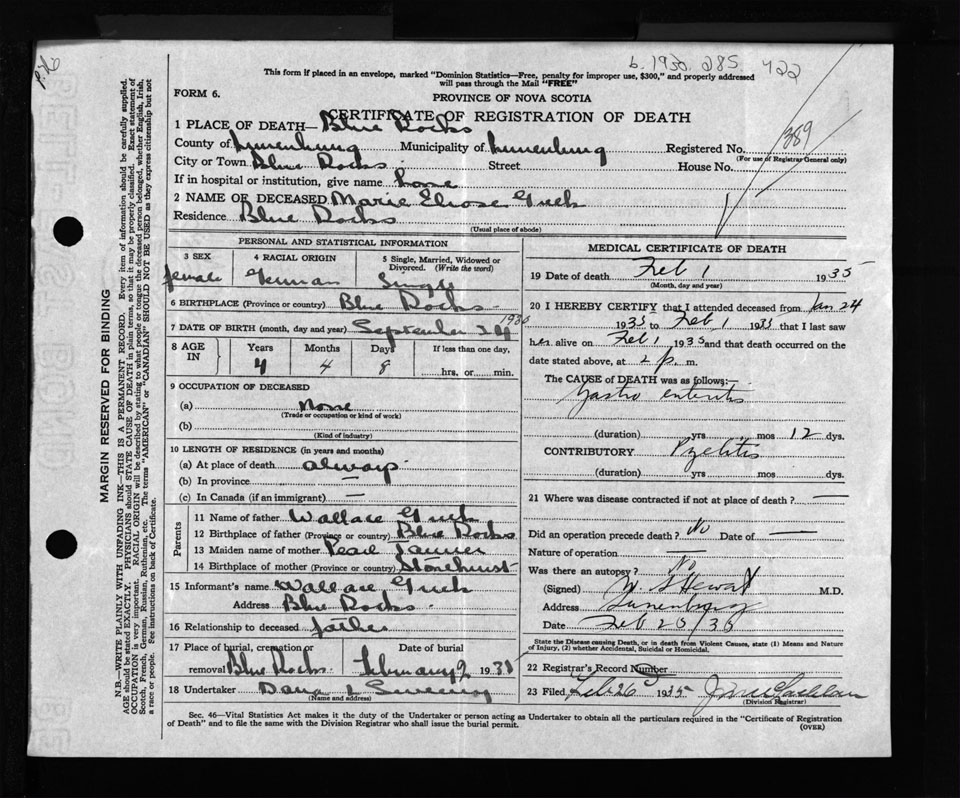 b. 1930 285 422
This form if placed in an envelope, marked "Dominion Statistics—Free, penalty for improper use, $300," and properly addressed
will pass through the Mail "FREE"
FORM 6.
PROVINCE OF NOVA SCOTIA
CERTIFICATE OF REGISTRATION OF DEATH
389
1 PLACE OF DEATH— Blue Rocks
County of Lunenburg Municipality of Lunenburg Registered No.
(For use of Registrar General only)
City or Town Blue Rocks Street House No.
If in hospital or institution, give name home
2 NAME OF DECEASED Marie Elrose
Residence Blue Rocks
(Usual place of abode)
PERSONAL AND STATISTICAL INFORMATION
3 SEX 4 RACIAL ORIGIN 5 Single, Married, Widowed or Divorced. (Write the word)
female German Single
6 BIRTHPLACE (Province or country) Blue Rocks
7 DATE OF BIRTH (month, day and year) September 24 1930
8 AGE IN Years Months Days If less than one day,
4 4 8 hrs. or min.
9 OCCUPATION OF DECEASED
(a) None
(Trade or occupation or kind of work)
(b)
(Kind of industry)
10 LENGTH OF RESIDENCE (in years and months)
(a) At place of death always
(b) In province —
(c) In Canada (if an immigrant) —
Parents
11 Name of father Wallace
12 Birthplace of father (Province or country) Blue Rocks
13 Maiden name of mother Pearl Tanner
14 Birthplace of mother (Province or country) Stonehurst
15 Informant's name Wallace
Address Blue Rocks
16 Relationship to deceased father
17 Place of burial, cremation or removal Blue Rocks Date of burial February 2 1935
18 Undertaker Dana L Sweeny
(Name and address)
MEDICAL CERTIFICATE OF DEATH
19 Date of death Feb 1 1935
(Month, day and year)
20 I HEREBY CERTIFY that I attended deceased from Jan 24
1935 to Feb 1 1935 that I last saw
her alive on Feb 1 1935 and that death occurred on the
date stated above, at 2 p. m.
The CAUSE of DEATH was as follows:—
Gastro enteritis
(duration) yrs mos 12 dys.
CONTRIBUTORY Pyelitis
(duration) yrs mos dys.
21 Where was disease contracted if not at place of death? —
Did an operation precede death? No Date of —
Nature of operation —
Was there an autopsy? No
(Signed) Stewart M.D.
Address Lunenburg
Date Feb 25/35
State the Disease causing Death, or in death from Violent Causes, state (1) Means and Nature
of Injury, (2) whether Accidental, Suicidal or Homicidal.
22 Registrar's Record Number
23 Filed Feb 26 1935
(Division Registrar)
Sec. 46—Vital Statistics Act makes it the duty of the Undertaker or person acting as Undertaker to obtain all the particulars required in the "Certificate of Registration
of Death" and to file the same with the Division Registrar who shall issue the burial permit.
(OVER)
MARGIN RESERVED FOR BINDING
N.B.—WRITE PLAINLY WITH UNFADING INK—THIS IS A PERMANENT RECORD. Every item of information should be carefully supplied.
AGE should be stated EXACTLY. PHYSICIANS should STATE CAUSE OF DEATH in plain terms, so that it may be properly classified. Exact statement of
OCCUPATION is very important. RACIAL ORIGIN will be described by stating to what people or tongue the deceased person belonged, whether English, Irish,
Scotch, French, German, Russian, Ruthenian, etc. The terms "AMERICAN" or "CANADIAN" SHOULD NOT BE USED as they express citizenship but not
a race or people. See instructions on back of Certificate.